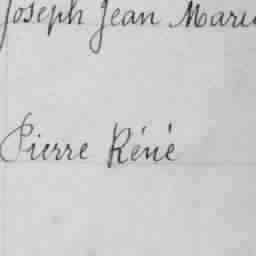 Joseph Jean Marie
Pierre Réné